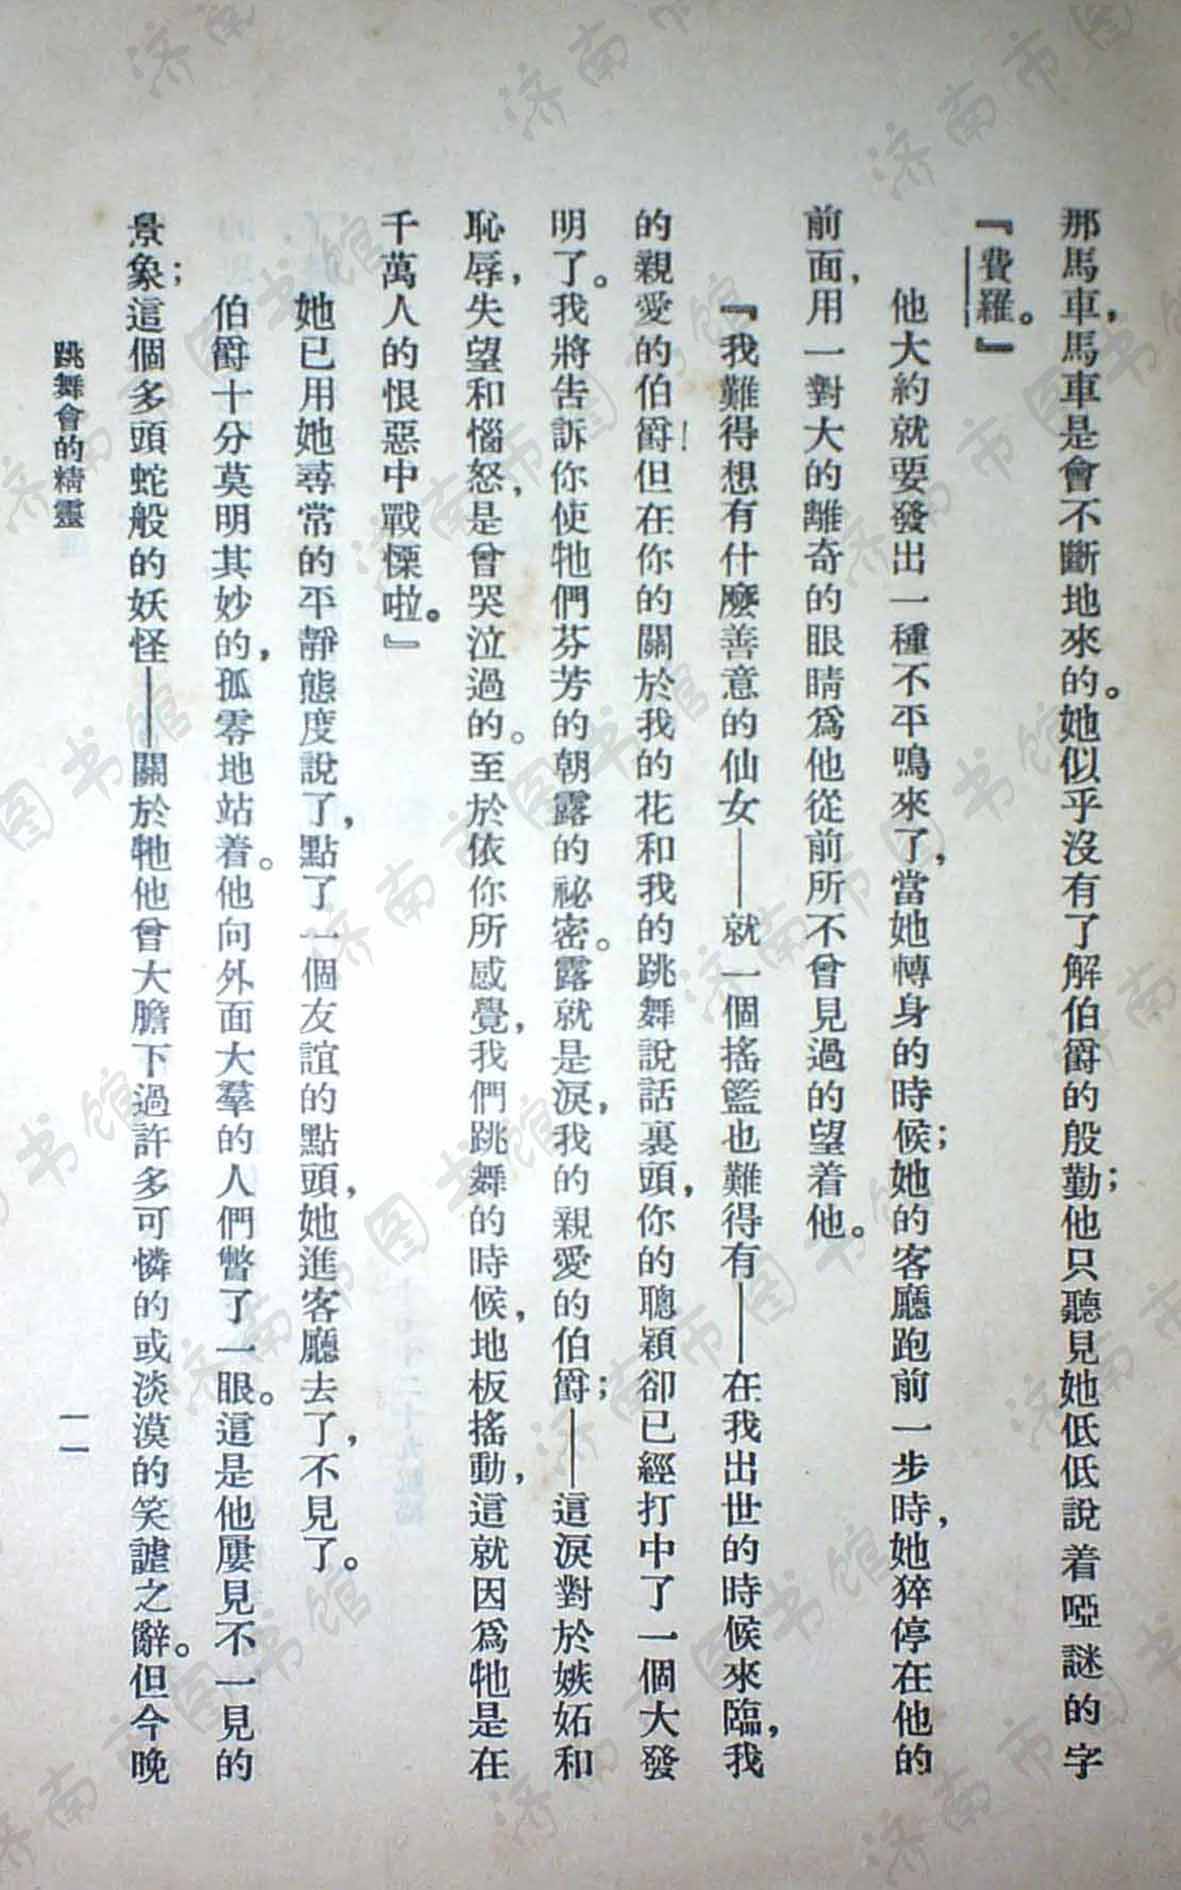 那馬車，馬車是會不斷地來的。她似乎沒有了解伯爵的殷勤；他只聽見她低低說着啞謎的字
『費羅。』
他大約就要發出一種不平鳴來了，當她轉身的時候；她的客廳跑前一步時，她猝停在他的
前面，用一對大的離奇的眼睛爲他從前所不曾見過的望着他。
『我難得想有什麼善意的仙女——就一個搖籃也難得有——在我出世的時候來臨，我
的親愛的伯爵！但在你的關於我的花和我的跳舞說話裏頭，你的聰穎卻已經打中了一個大發
明了。我將告訴你使牠們芬芳的朝露的祕密。露就是淚，我的親愛的伯爵；——這淚對於嫉妬和
恥辱，失望和惱怒，是曾哭泣過的。至於依你所感覺，我們跳舞的時候，地板搖動，這就因爲牠是在
千萬人的恨惡中戰慄啦。』
她已用她尋常的平靜態度說了，點了一個友誼的點頭，她進客廳去了，不見了。
伯爵十分莫明其妙的，孤零地站着。他向外面大羣的人們瞥了一眼。這是他屢見不一見的
景象；這個多頭蛇般的妖怪——關於牠他曾大膽下過許多可憐的或淡漠的笑謔之辭。但今晚
跳舞會的精靈
一一
济南市图书馆